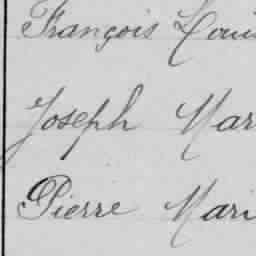 François Loui
Joseph Mar
Pierre Mari